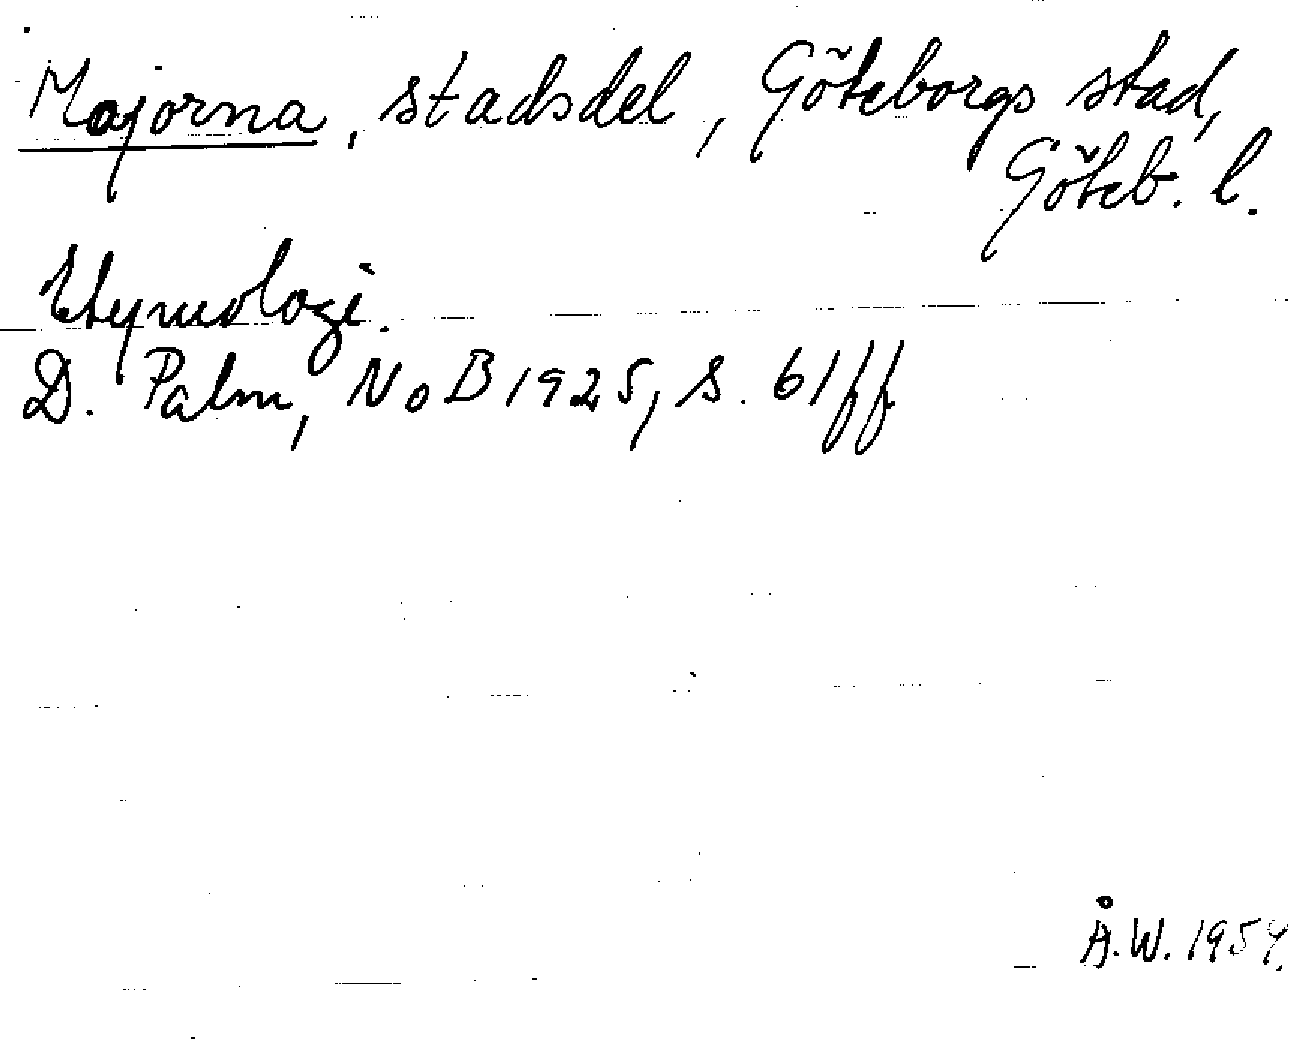 Majorna, stadsdel, Göteborgs stad,
Göteb. l.
Etymologi.
D. Palm, NoB 1925, s. 61 ff
Å.W. 1954.